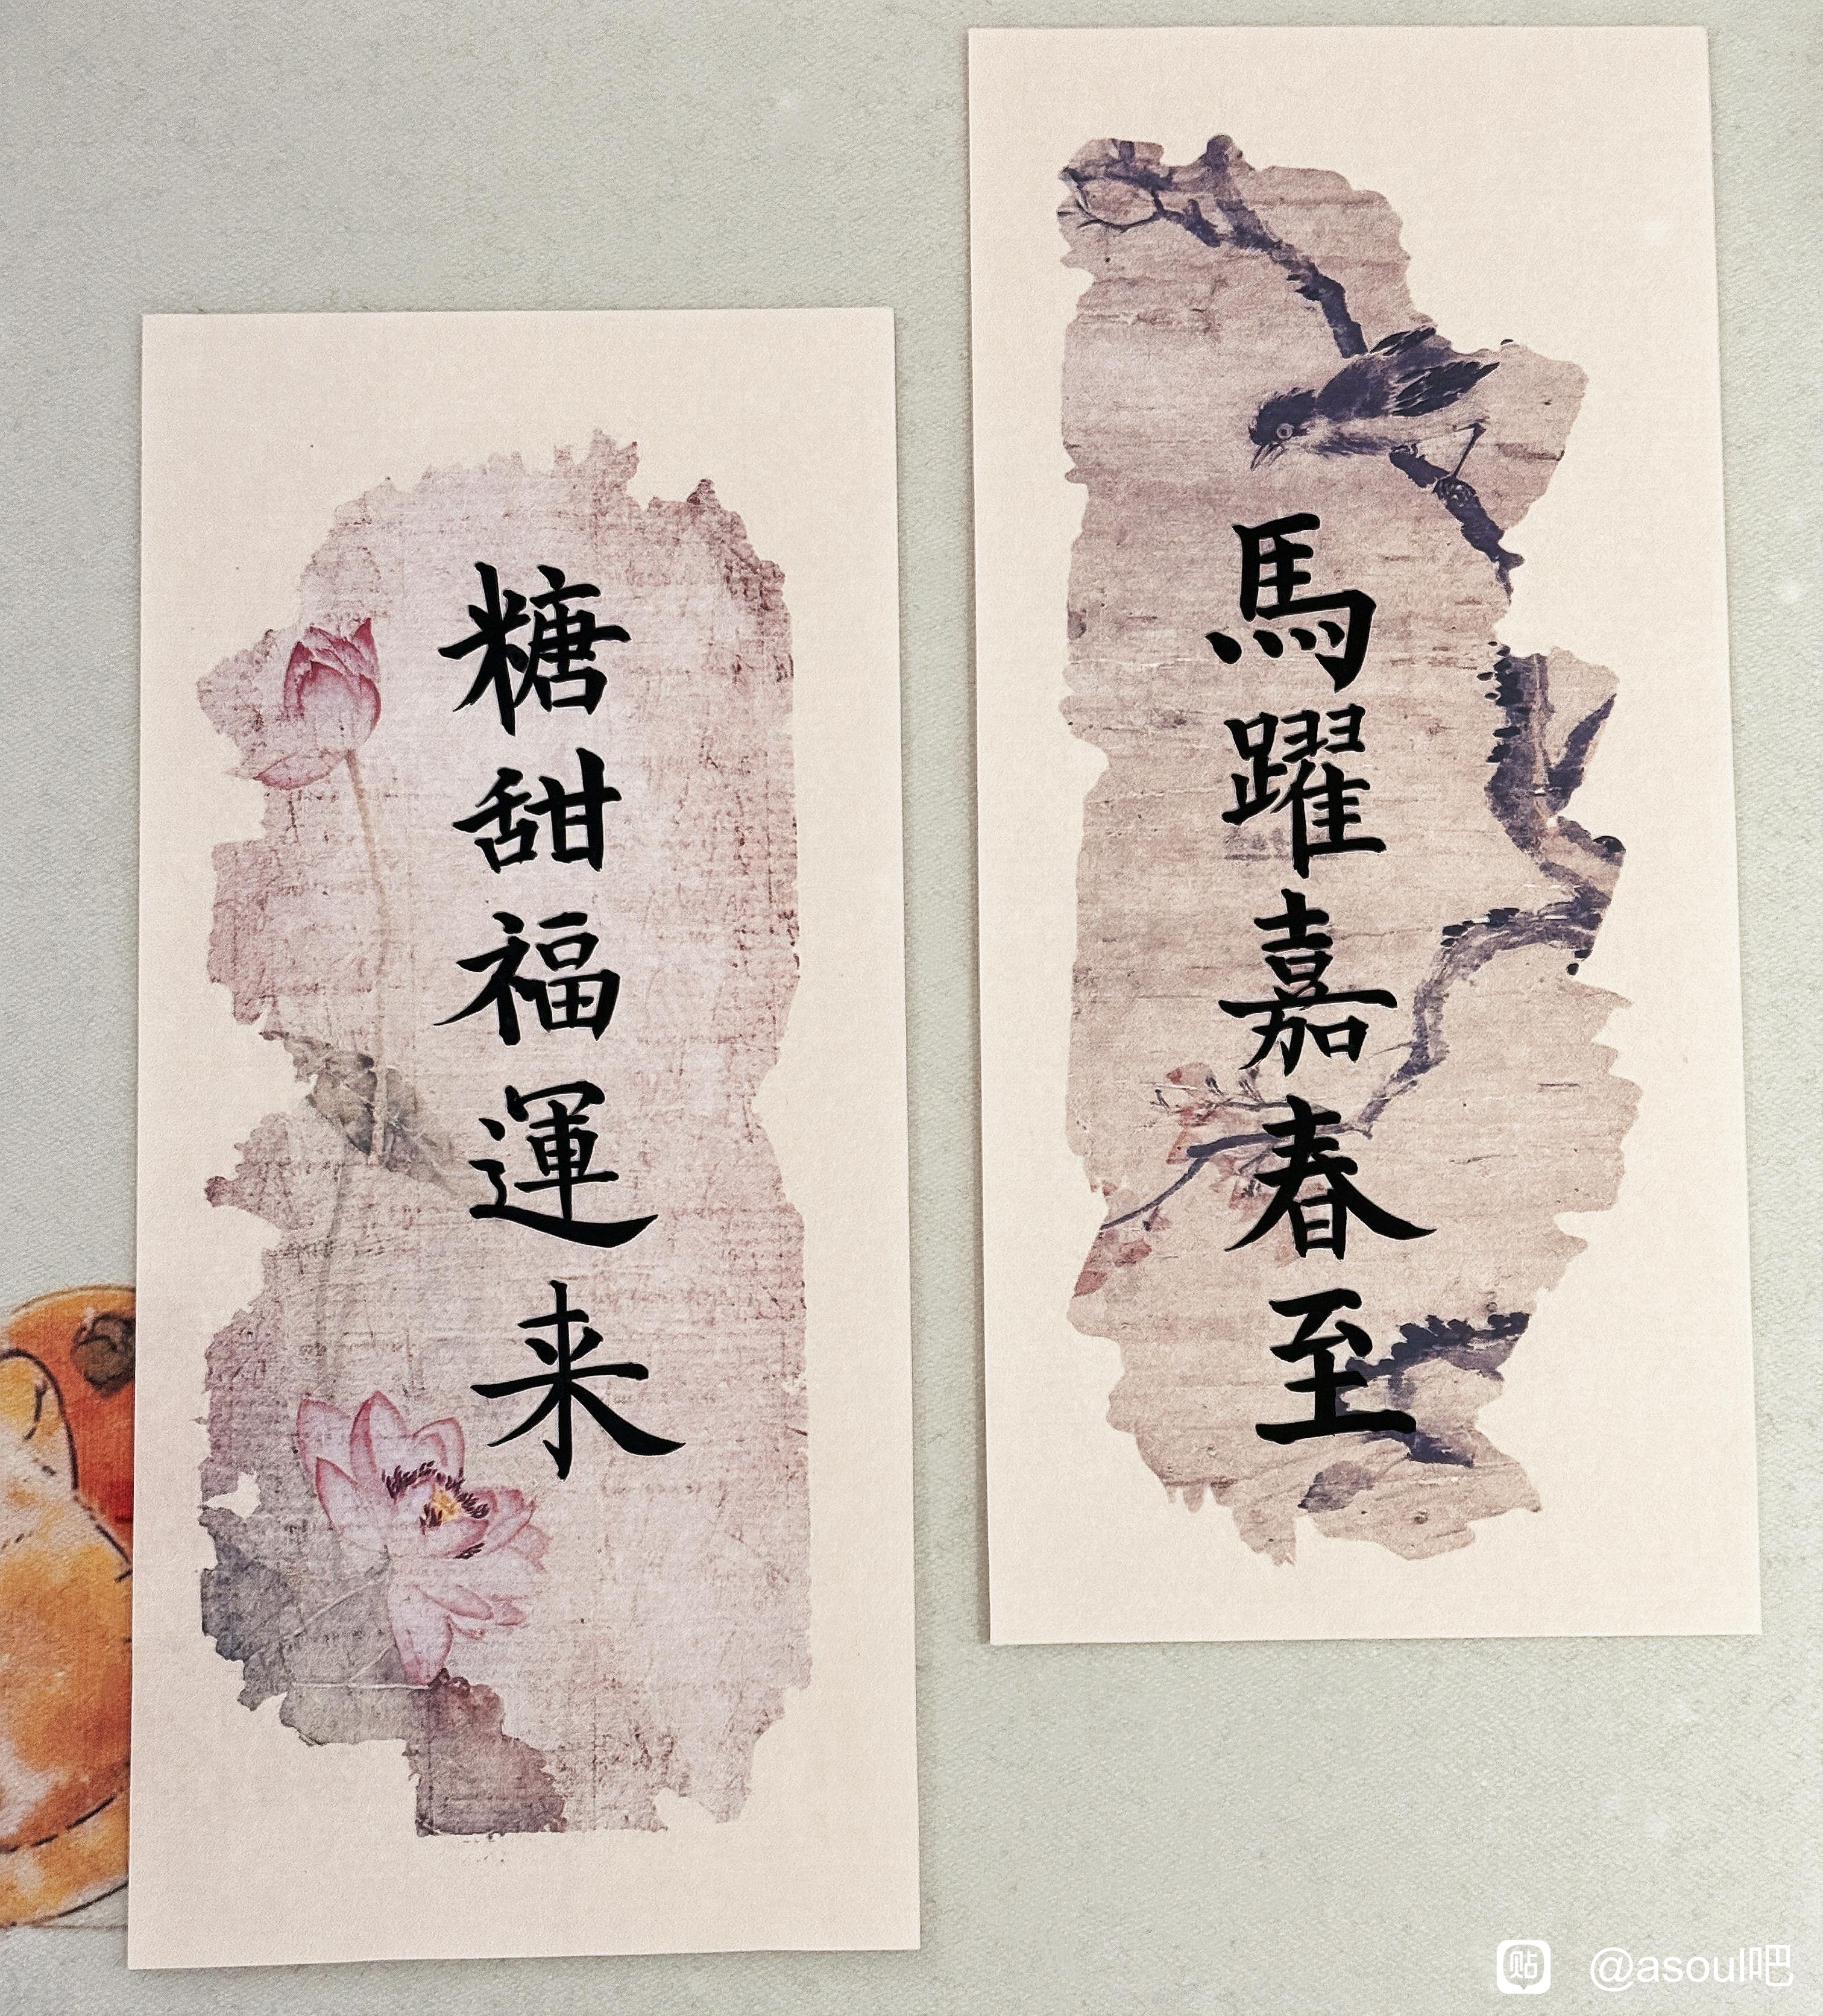 馬躍嘉春至
糖甜福運来
貼 @asoul吧